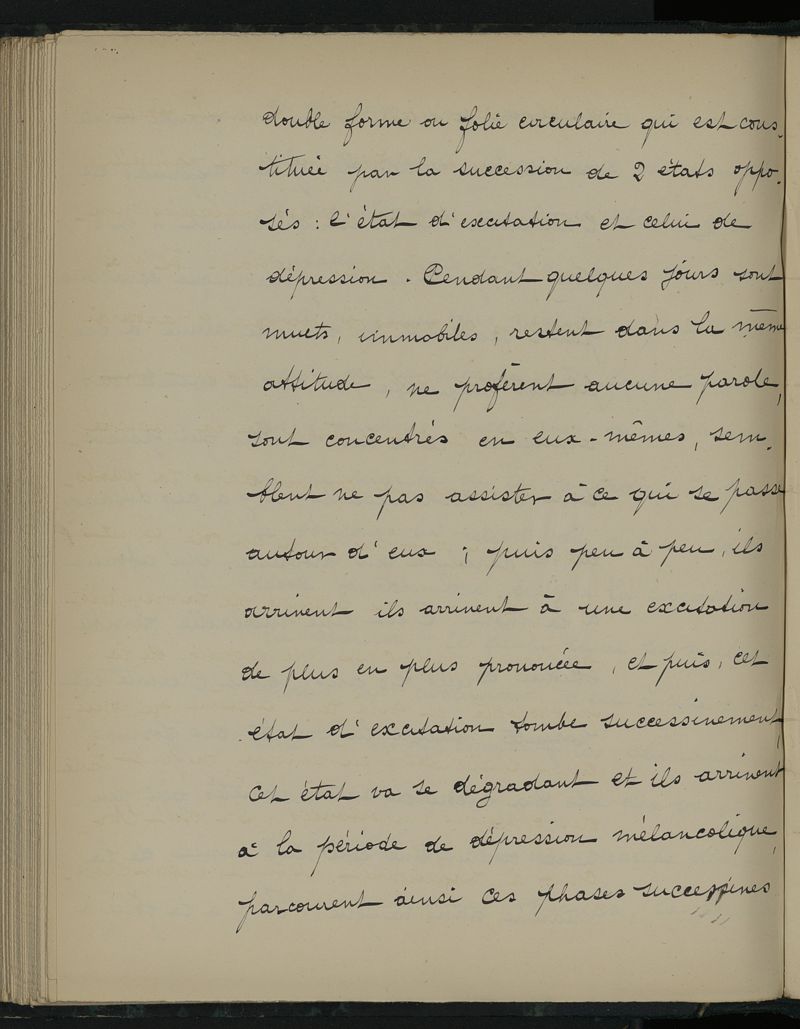 double forme ou folie circulaire qui est cons-
tituée par la succession de 2 états oppo-
sés : l'état d'excitation et celui de
dépression. Pendant quelques jours sont
muets, immobiles, restent dans la même
attitude, ne profèrent aucune parole,
sont concentrés en eux-mêmes, sem-
blent ne pas assister à ce qui se passe
autour d'eux ; puis peu à peu, ils
arrivent ils arrivent à une excitation
de plus en plus prononcée, et puis, cet
état d'excitation tombe successivement,
cet état va se dégradant et ils arrivent
à la période de dépression mélancolique,
parcourent ainsi ces phases successives